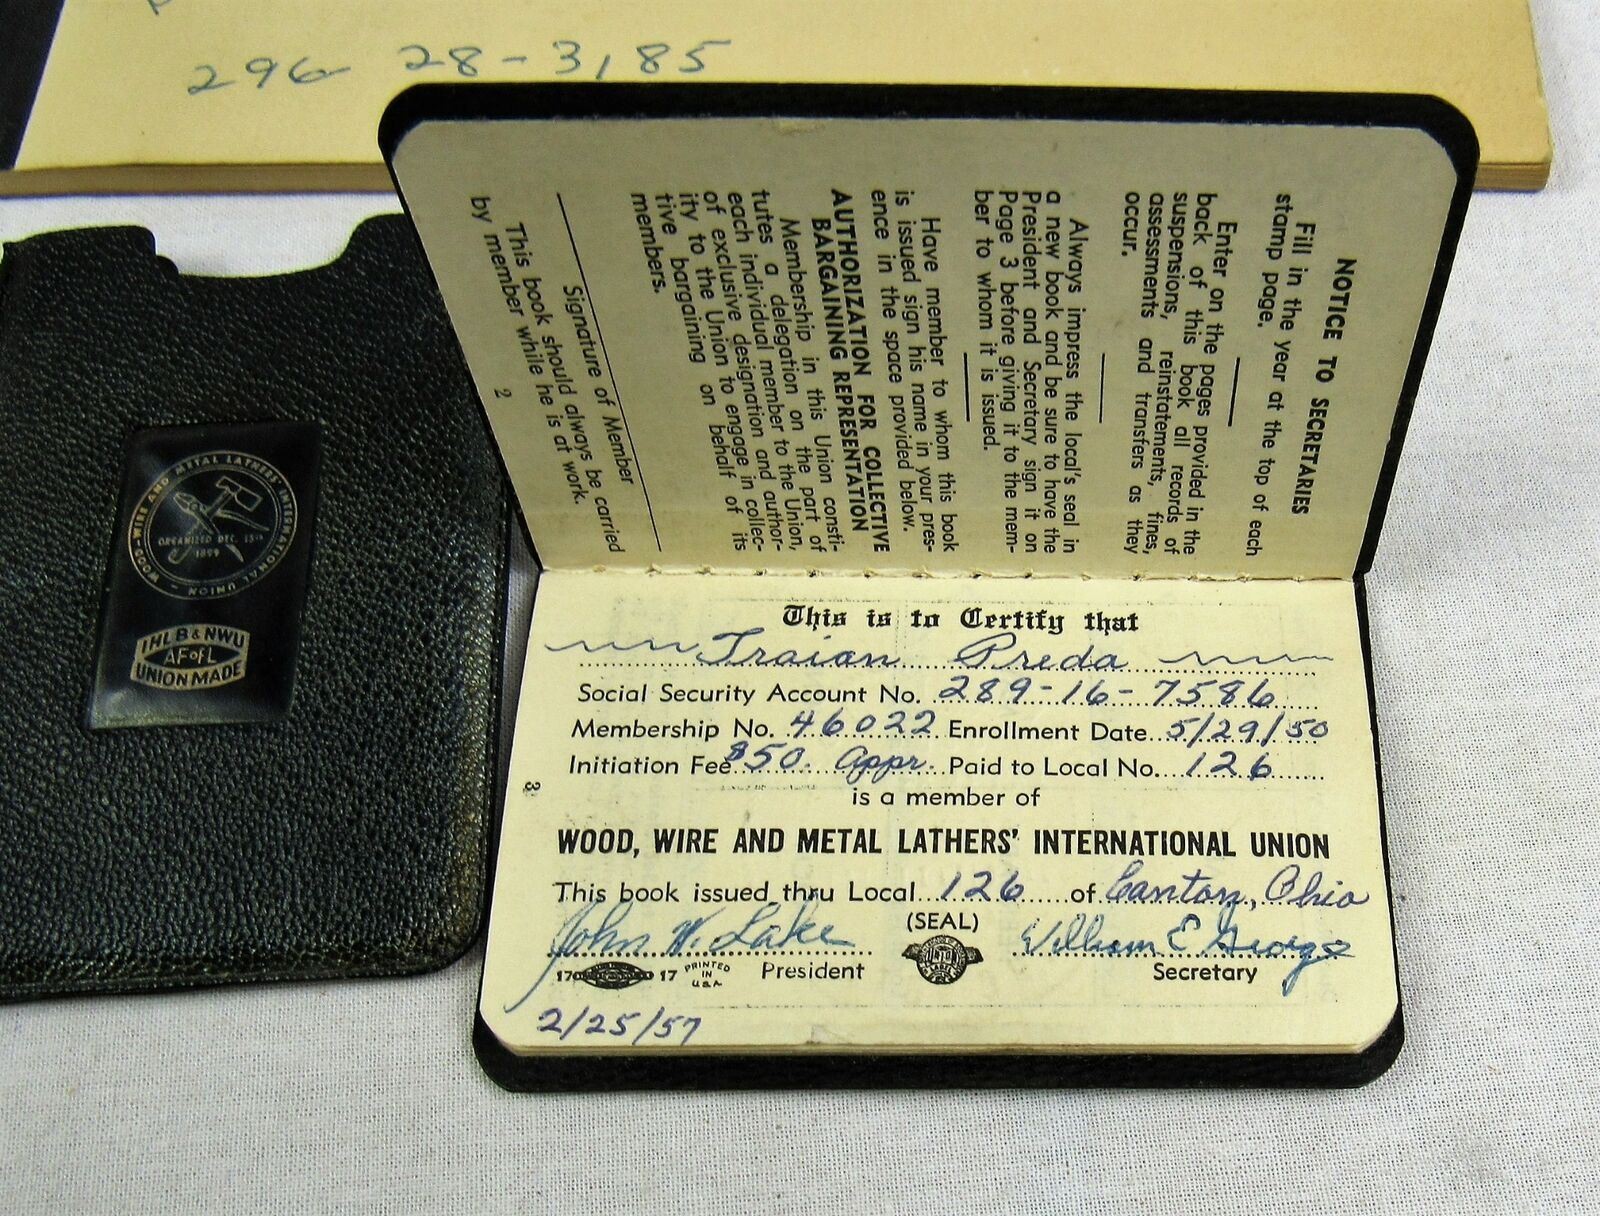 296 28-3,85
NOTICE TO SECRETARIES
Fill in the year at the top of each
stamp page.
Enter on the pages provided in the
back of this book all records of
suspensions, reinstatements, fines,
assessments and transfers as they
occur.
Always impress the local's seal in
a new book and be sure to have the
President and Secretary sign it on
Page 3 before giving it to the mem-
ber to whom it is issued.
Have member to whom this book
is issued sign his name in your pres-
ence in the space provided below.
AUTHORIZATION FOR COLLECTIVE
BARGAINING REPRESENTATION
Membership in this Union consti-
tutes a delegation on the part of
each individual member to the Union,
of exclusive designation and author-
ity to the Union to engage in collec-
tive bargaining on behalf of its
members.
Signature of Member
This book should always be carried
by member while he is at work.
2
WOOD WIRE AND METAL LATHERS' INTERNATIONAL UNION
ORGANIZED DEC. 15th
1899
IHL B & NWU
AF of L
UNION MADE
This is to Certify that
Traian Preda
Social Security Account No. 289-16-7586
Membership No. 46022 Enrollment Date 5/29/50
Initiation Fee $50. appr. Paid to Local No. 126
is a member of
WOOD, WIRE AND METAL LATHERS' INTERNATIONAL UNION
This book issued thru Local 126 of Canton, Ohio
(SEAL)
John W. Lake William E George
17 17 PRINTED IN U.S.A. President Secretary
2/25/57
3